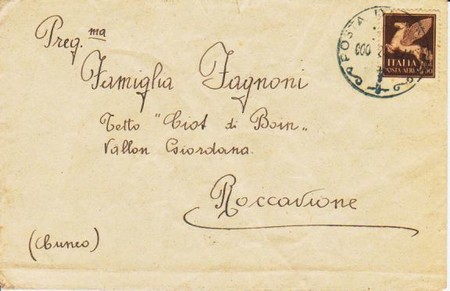 Preg.ma
Famiglia Fagnoni
Tetto "Ciot di Bom"
Vallon Giordana
Roccavione
(Cuneo)
POSTA
ITALIA
POSTA AEREA